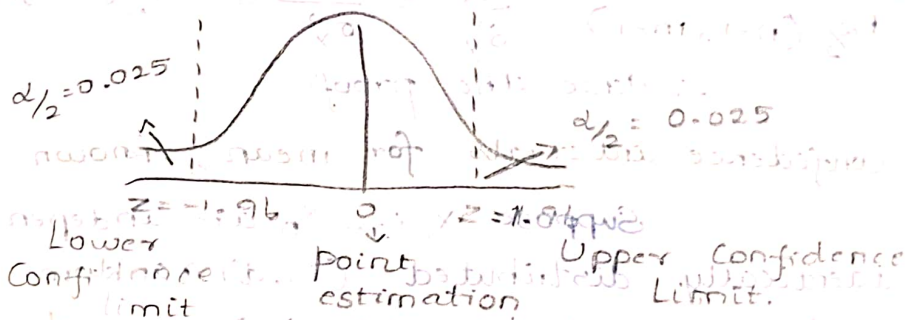 α/2=0.025
α/2 = 0.025
Z = -1.96.
0
Z = 1.96
Lower
Confidence
limit
point
estimation
Upper Confidence
Limit.